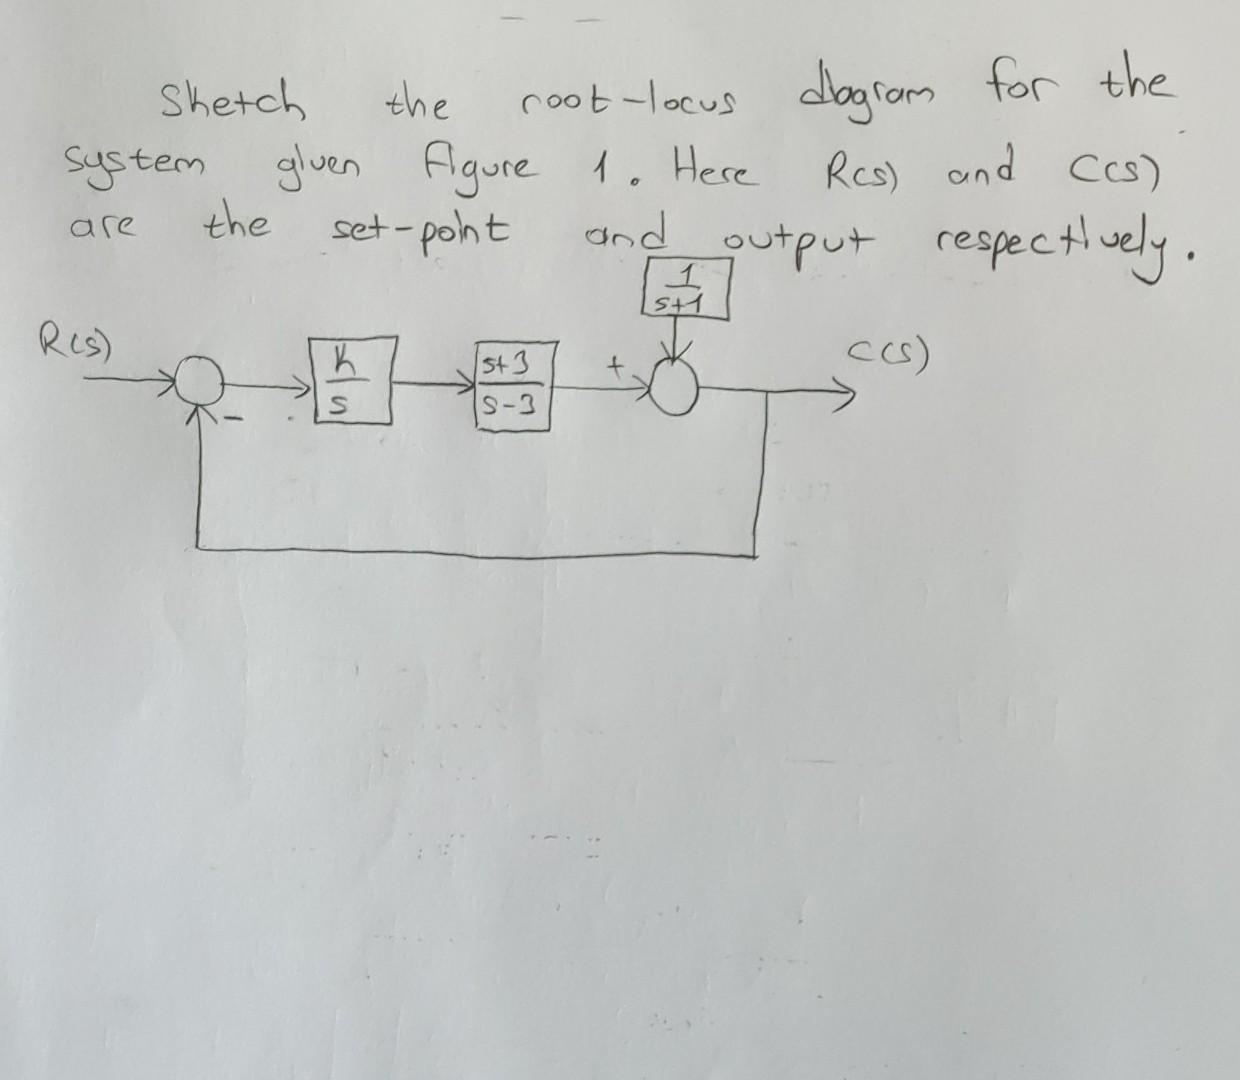 Sketch the root-locus diagram for the
system given Figure 1. Here R(s) and C(s)
are the set-point and output respectively.
1
s+1
R(s)
K
s
s+3
s-3
+
C(s)
-